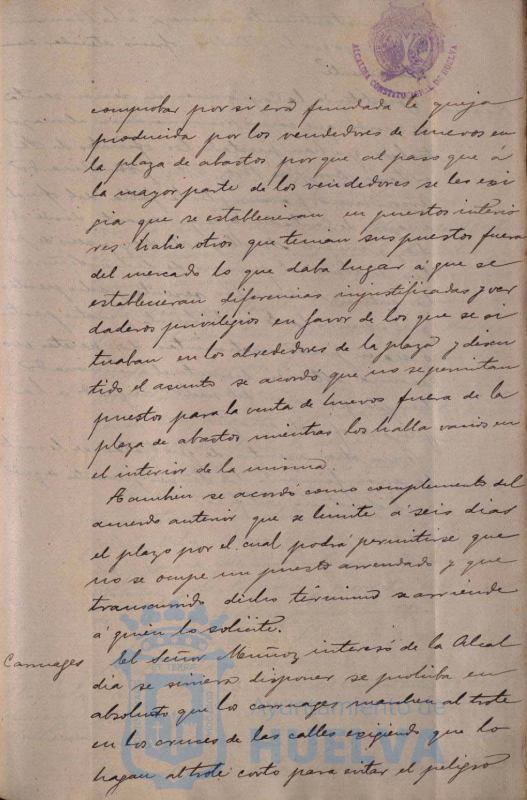 ALCALDIA CONSTITUCIONAL DE HUELVA
comprobar por si era fundada la queja
producida por los vendedores de huevos en
la plaza de abastos porque al paso que á
la mayor parte de los vendedores se les exi
gia que se establecieran en puestos interio
res habia otros que tenian sus puestos fuera
del mercado lo que daba lugar á que se
establecieran diferencias injustificadas y ver
daderos privilegios en favor de los que se si
tuaban en los alrededores de la plaza y discu
tido el asunto se acordó que no se permitan
puestos para la venta de huevos fuera de la
plaza de abastos mientras los halla varios en
el interior de la misma.
Tambien se acordó como complemento del
acuerdo anterior que se limite á seis dias
el plazo por el cual podrá permitirse que
no se ocupe un puesto arrendado y que
transcurrido dicho término se arriende
á quien lo solicite.
Carruages
El Señor Muñoz interesó de la Alcal
dia se sirviera disponer se prohiba en
absoluto que los carruages marchen al trote
en los cruces de las calles exigiendo que lo
hagan al trote corto para evitar el peligro
Ayuntamiento de
HUELVA